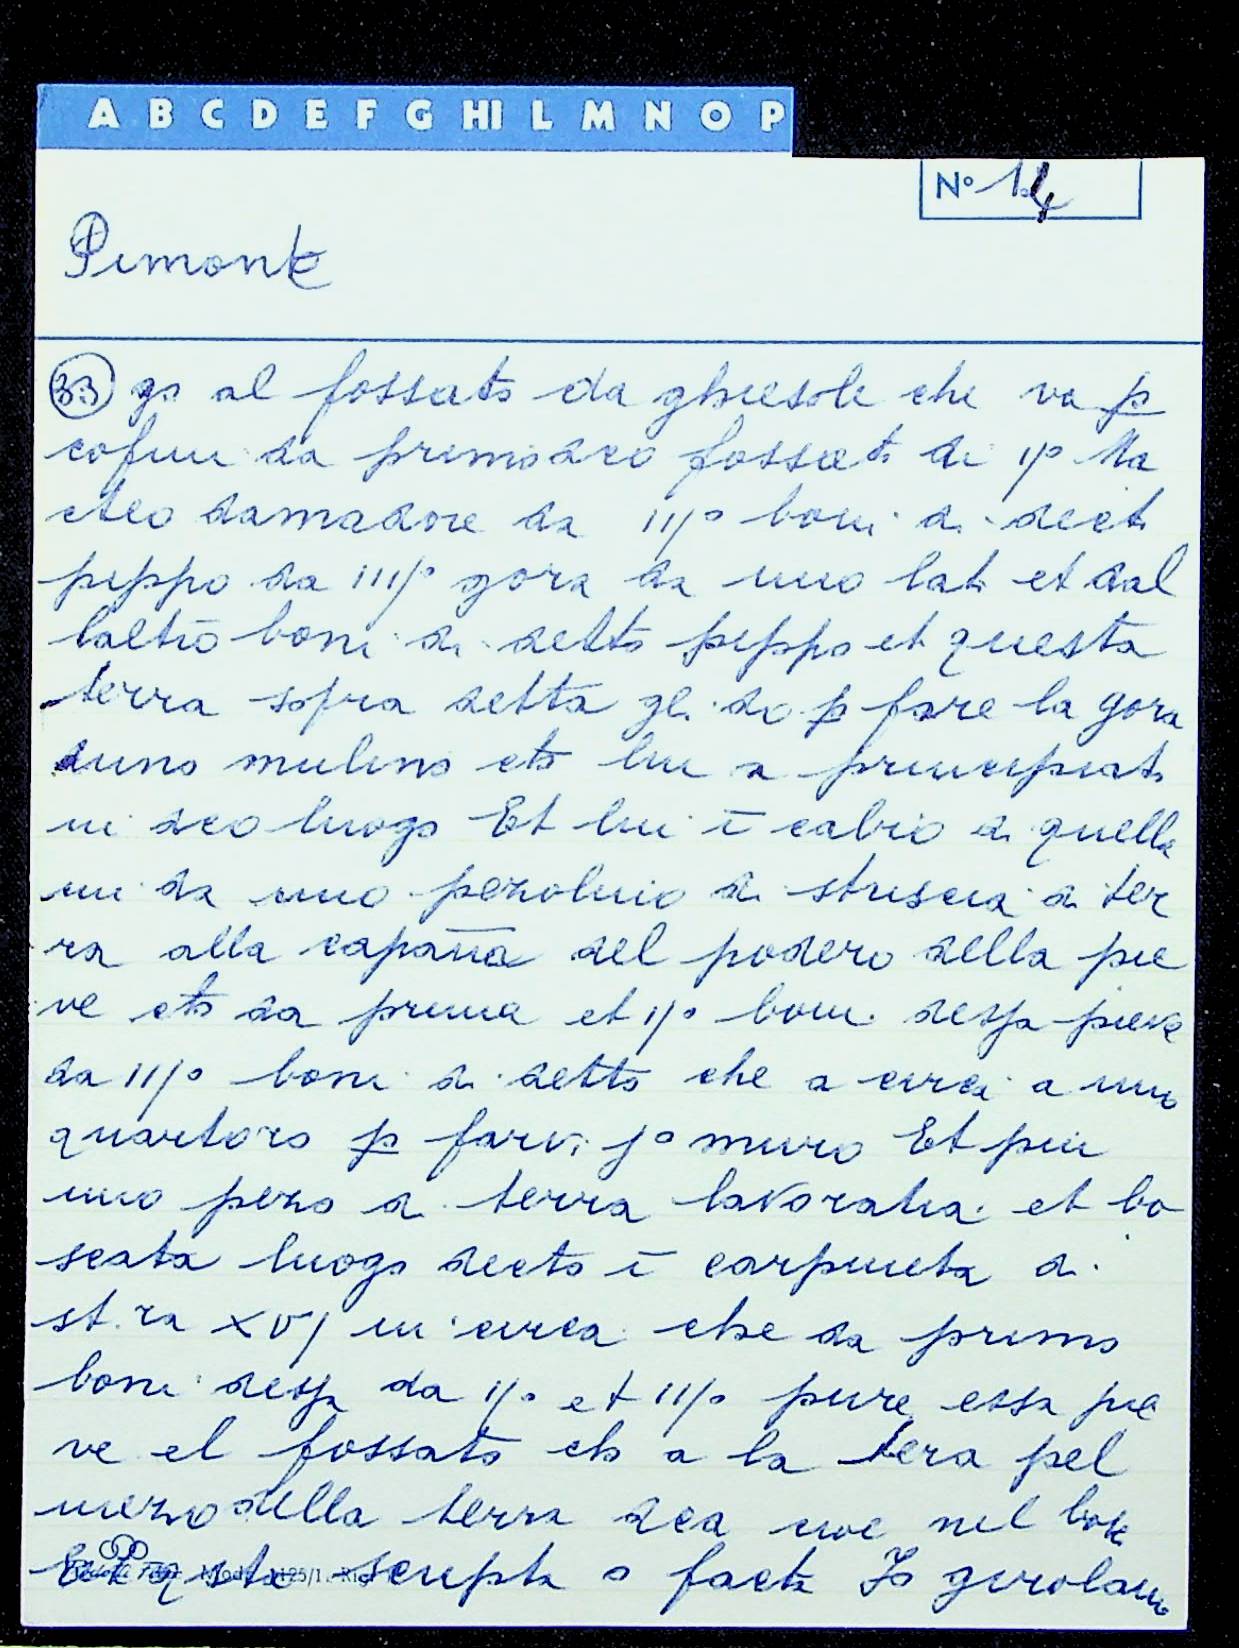 A B C D E F G HI L M N O P
N° 14
Pimonte
33 go al fossato da ghiesole che va p
cofini da primo deo fossato di ij° Ma
cteo damadore da iij° boni di decto
pippo da iiij° gora da uno lato et dal
laltro boni di detto pippo et questa
terra sopra detta gli do p fare la gora
duno mulino cto lui a principiato
in deo luogo Et lui ī cabio di quella
mi da uno pezoluio di striscia di ter
ra alla capana del podero della pie
ve cto da prima et ij° boni desa pieve
da iij° boni di detto che a circa a uno
quartoro p farvi j° muro Et piu
uno pezo di terra lavoratia et bo
scata luogo decto ī carpineta di
st.ra xvj in circa che da primo
boni desa da ij° et iij° pure essa pie
ve el fossato cto a la tera pel
mezo della terra dea cioe nel
scripta o facta Jo girolamo